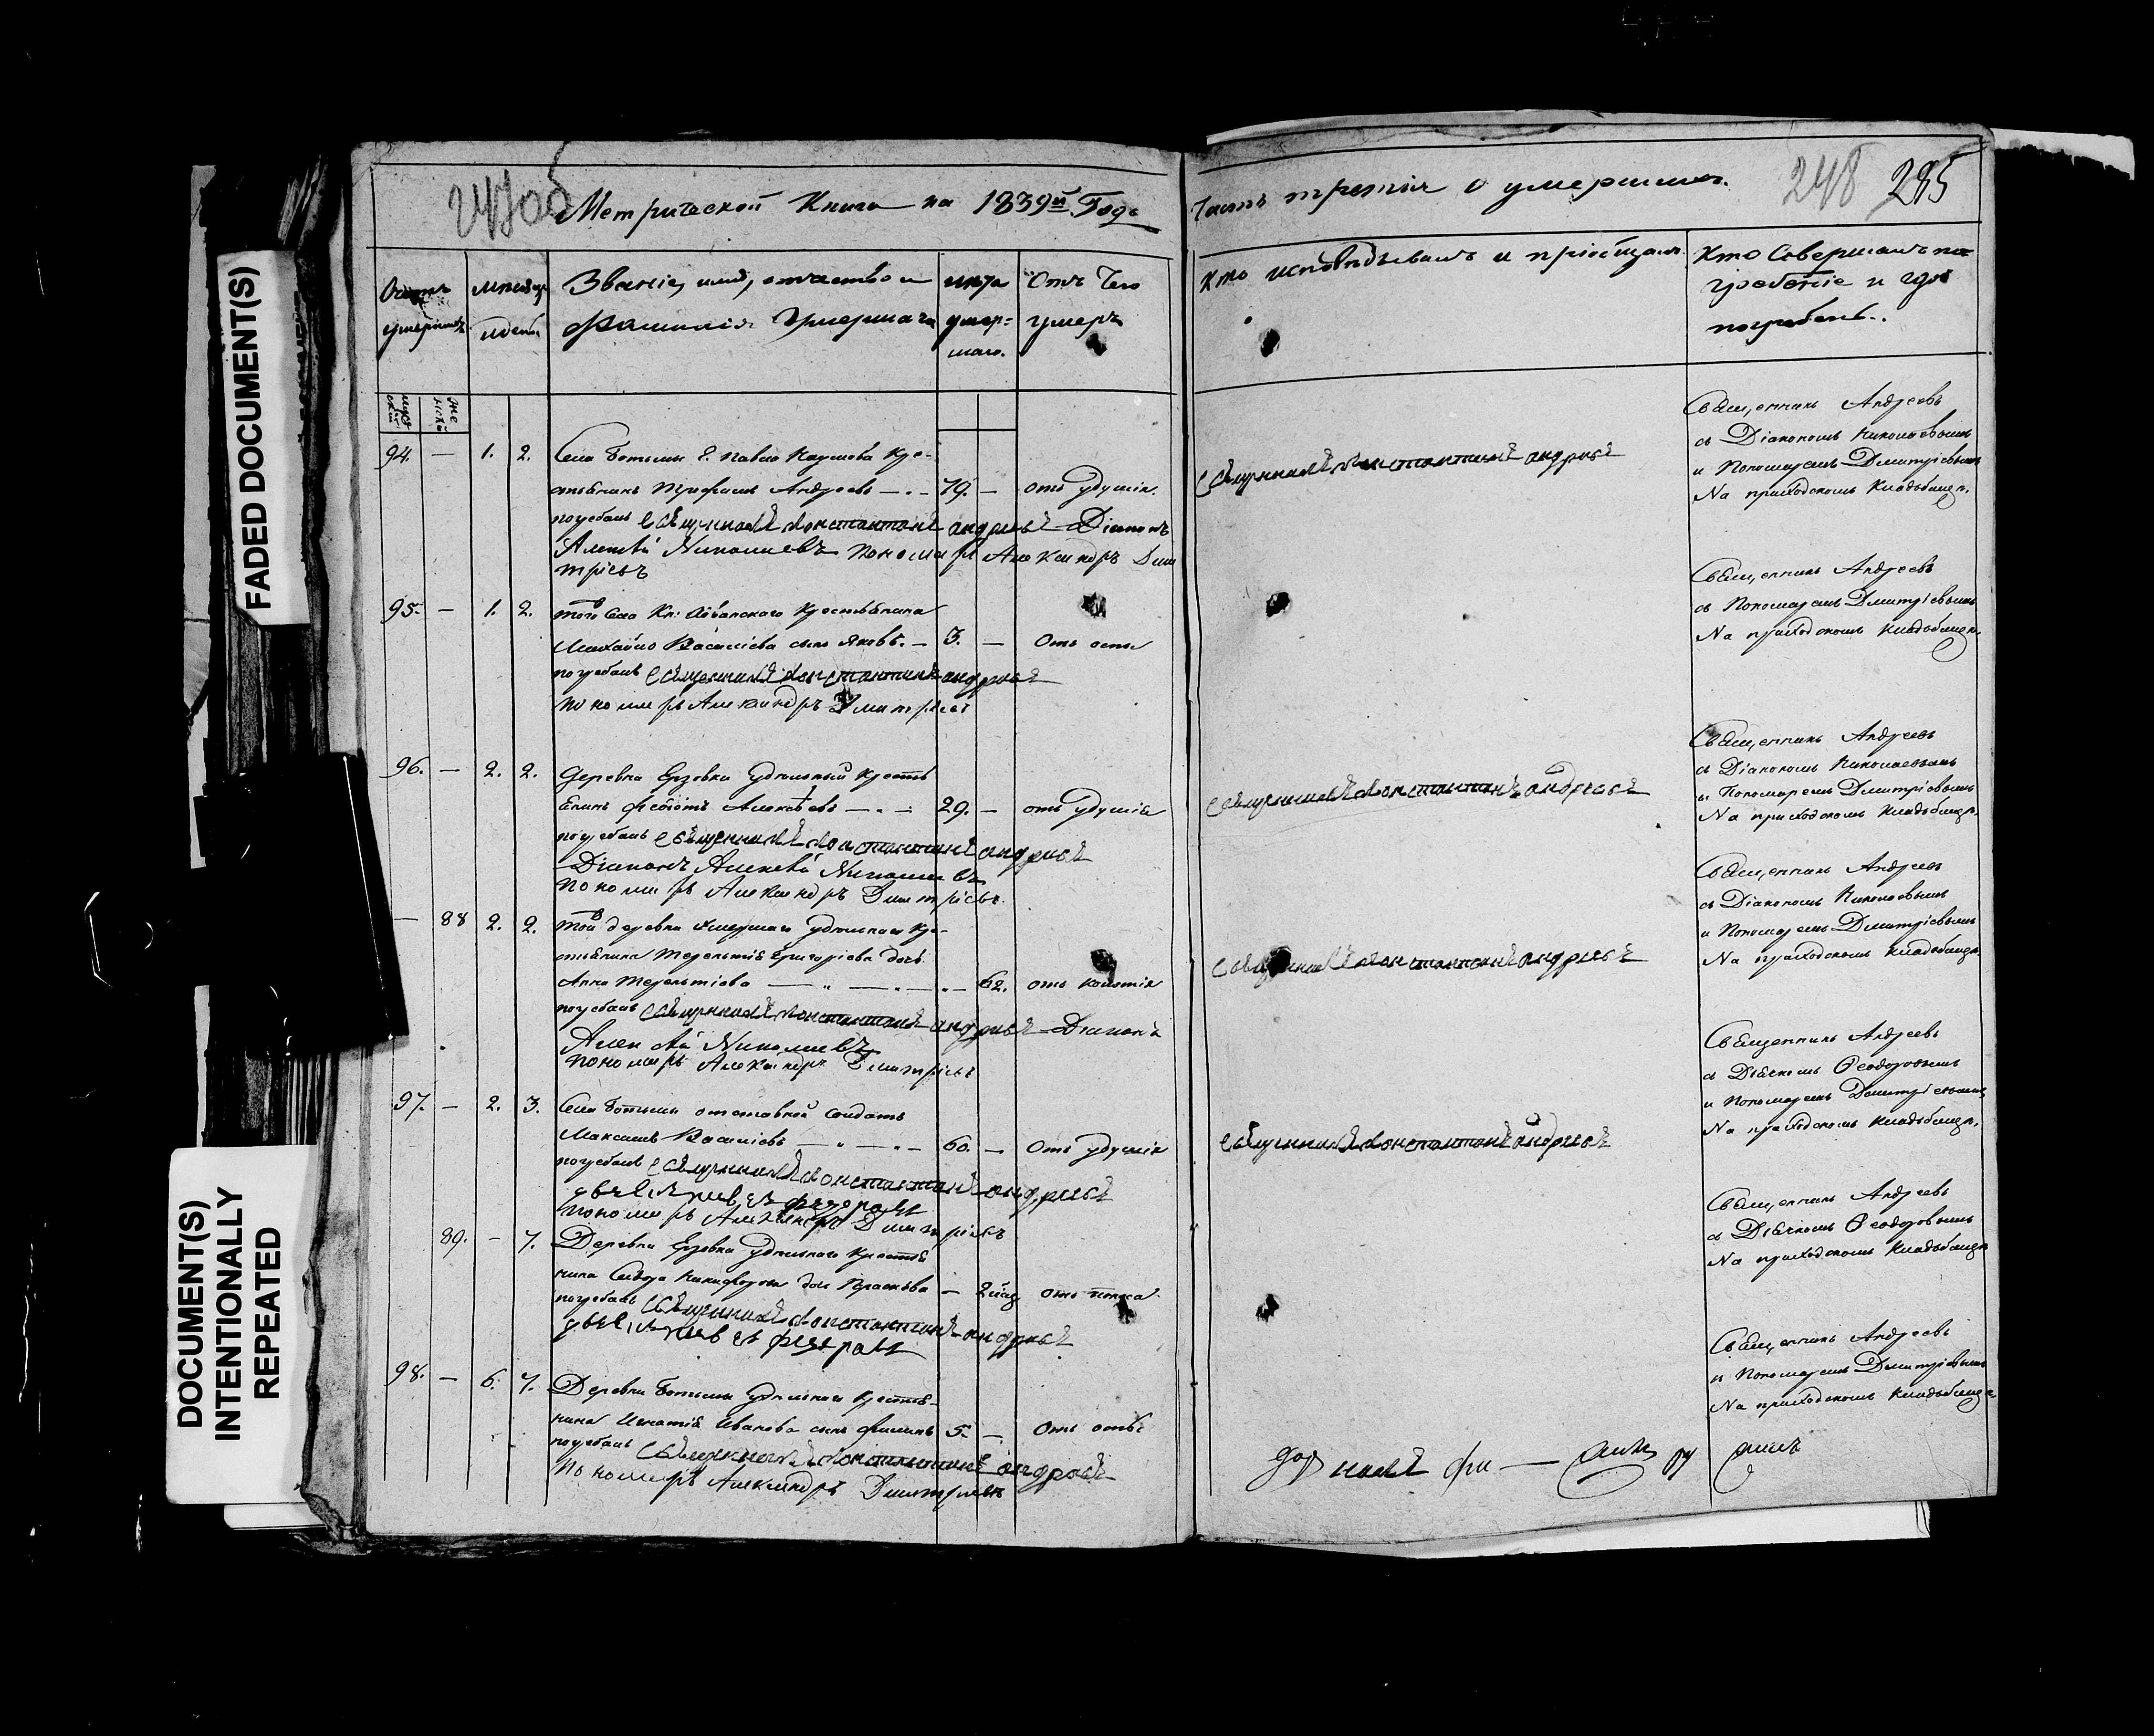 FADED DOCUMENT(S)
DOCUMENT(S)
INTENTIONALLY
REPEATED
247 об
Метрической Книги на 1839й Годъ
Часть третія о умершихъ.
248 285
Счетъ умершихъ
мѣсяцъ и день
Званіе, имя, отчество и
фамилія Умершаго
лѣта
умер-
шаго.
Отъ Чего
умеръ
Кто исповѣдывалъ и пріобщалъ
Кто Совершалъ по
гребеніе и гдѣ
погребенъ.
94. — 1. 2. Села Ботьмы Г. Павла Наумова Кре-
стьянинъ Трофимъ Андреевъ — 79. — отъ удушія.
погребалъ Священникъ Константинъ Андреевъ Діаконъ
Алексѣй Николаевъ пономарь Александръ Дми
тріевъ
Священникъ Константинъ Андреевъ
Священникъ Андреевъ
съ Діакономъ Николаевымъ
и Пономаремъ Дмитріевымъ
На приходскомъ Кладбищѣ.
95. — 1. 2. того Села Кн: Крестьянина
Михайло Васильева сынъ Яковъ. — 3. — Отъ оспы
погребалъ Священникъ Константинъ Андреевъ
пономарь Александръ Дмитріевъ
Священникъ Андреевъ
съ Пономаремъ Дмитріевымъ
На приходскомъ Кладбищѣ.
96. — 2. 2. Деревни Ерзовки Удѣльный Кресть
янинъ Федотъ Алексѣевъ — 29. — отъ удушія
погребалъ Священникъ Константинъ Андреевъ
Діаконъ Алексѣй Николаевъ
пономарь Александръ Дмитріевъ
Священникъ Константинъ Андреевъ
Священникъ Андреевъ
съ Діакономъ Николаевымъ
и Пономаремъ Дмитріевымъ
На приходскомъ Кладбищѣ.
— 88 2. 2. той деревни умершаго Удѣльнаго Кре-
стьянина Терентія Григоріева дочь
Анна Терентіева — 62. отъ колотія
погребалъ Священникъ Константинъ Андреевъ Діаконъ
Алексѣй Николаевъ
пономарь Александръ Дмитріевъ
Священникъ Константинъ Андреевъ
Священникъ Андреевъ
съ Діакономъ Николаевымъ
и Пономаремъ Дмитріевымъ
На приходскомъ Кладбищѣ.
97. — 2. 3. Села Ботьмы отставной Солдатъ
Максимъ Васильевъ — 60. — Отъ удушія
погребалъ Священникъ Константинъ Андреевъ
пономарь Александръ Дмитріевъ
Священникъ Константинъ Андреевъ
Священникъ Андреевъ
съ Дьячкомъ Ѳеодоровымъ
и Пономаремъ Дмитріевымъ
На приходскомъ Кладбищѣ.
89. — 7. Деревни Ерзовки Удѣльнаго Крестья
нина Сидора Никифорова дочь Прасковья —
погребалъ Священникъ Константинъ Андреевъ
Священникъ Андреевъ
съ Дьячкомъ Ѳеодоровымъ
На приходскомъ Кладбищѣ
98. — 6. 7. Деревни Ботьмы Удѣльнаго Крестья-
нина Игнатія Иванова сынъ Филипъ 5. —
погребалъ Священникъ Константинъ Андреевъ
пономарь Александръ Дмитріевъ
Священникъ Андреевъ
и Пономаремъ Дмитріевымъ
На приходскомъ Кладбищѣ